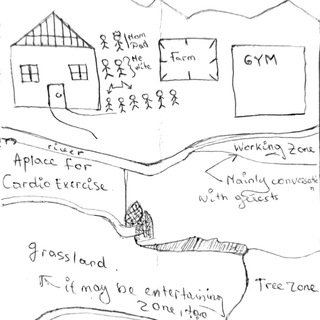 Mam
Dad
Me
wite
Farm
GYM
river
Working Zone
A place for
Cardio Exercise.
Mainly conversati
n
with guests
grassland.
it may be entertaining
zone, too
Tree Zone